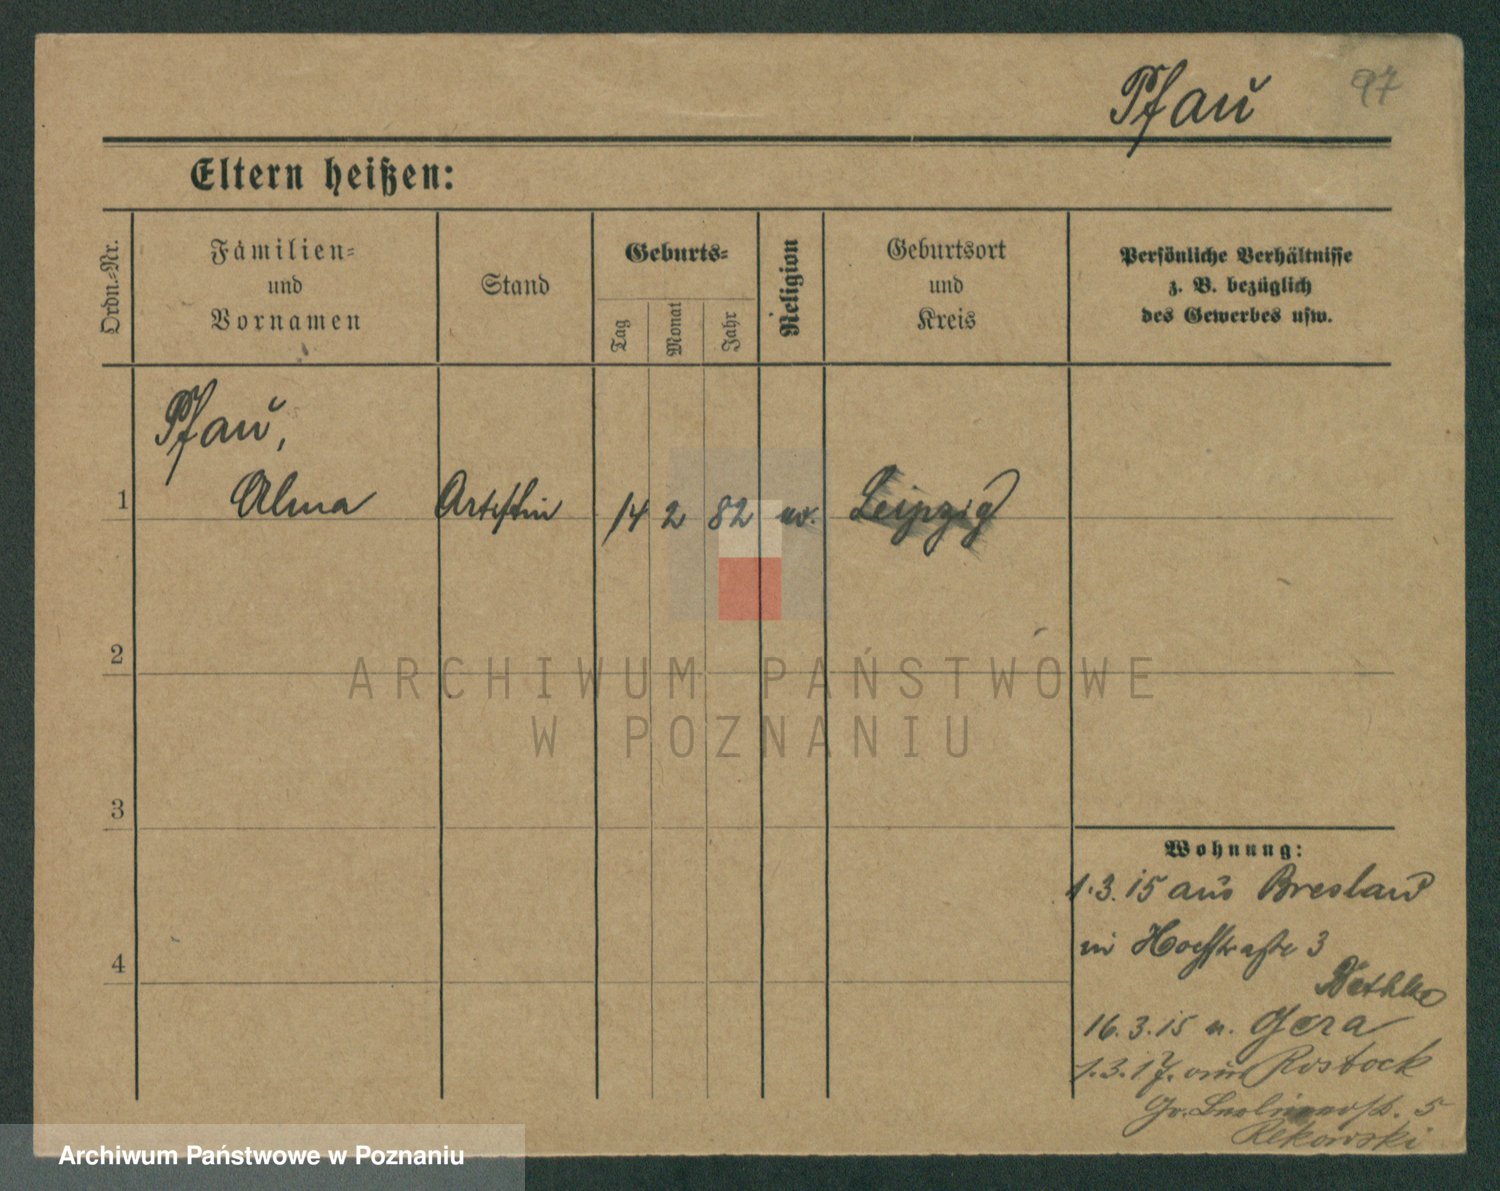 Pfau 97
Eltern heißen:
Ordn.-Nr.
Familien-
und
Vornamen
Stand
Geburts-
Tag
Monat
Jahr
Religion
Geburtsort
und
Kreis
Persönliche Verhältnisse
z. B. bezüglich
des Gewerbes usw.
Pfau,
1 Alma Artistin 14 2 82 ev. Leipzig
2
3
4
Wohnung:
1.3.15 aus Breslau
in Hochstraße 3
Bethke
16.3.15 n. Gera
1.3.17. von Rostock
Gr. 5
Rekowski
ARCHIWUM PAŃSTWOWE
W POZNANIU
Archiwum Państwowe w Poznaniu